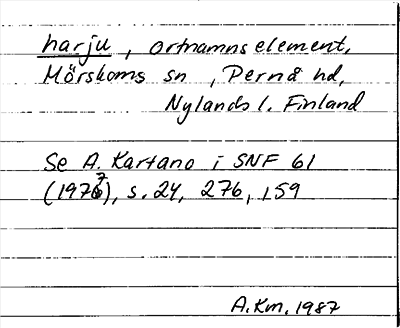 harju, ortnamnselement,
Mörskoms sn, Pernå hd,
Nylands l. Finland
Se A. Kartano i SNF 61
(1977), s. 24, 276, 159
A.Km. 1987